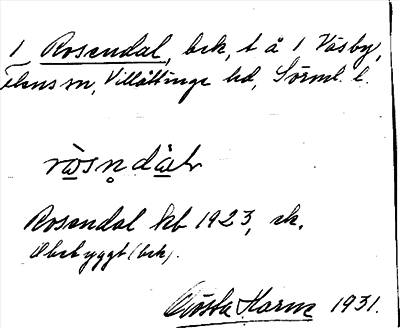 1 Rosendal, bek, t å 1 Väsby,
Flens sn, Villåttinge hd, Sörml. l.
Rosendal kb 1923, ek.
Obebyggt (bek).
Gösta Harm 1931.